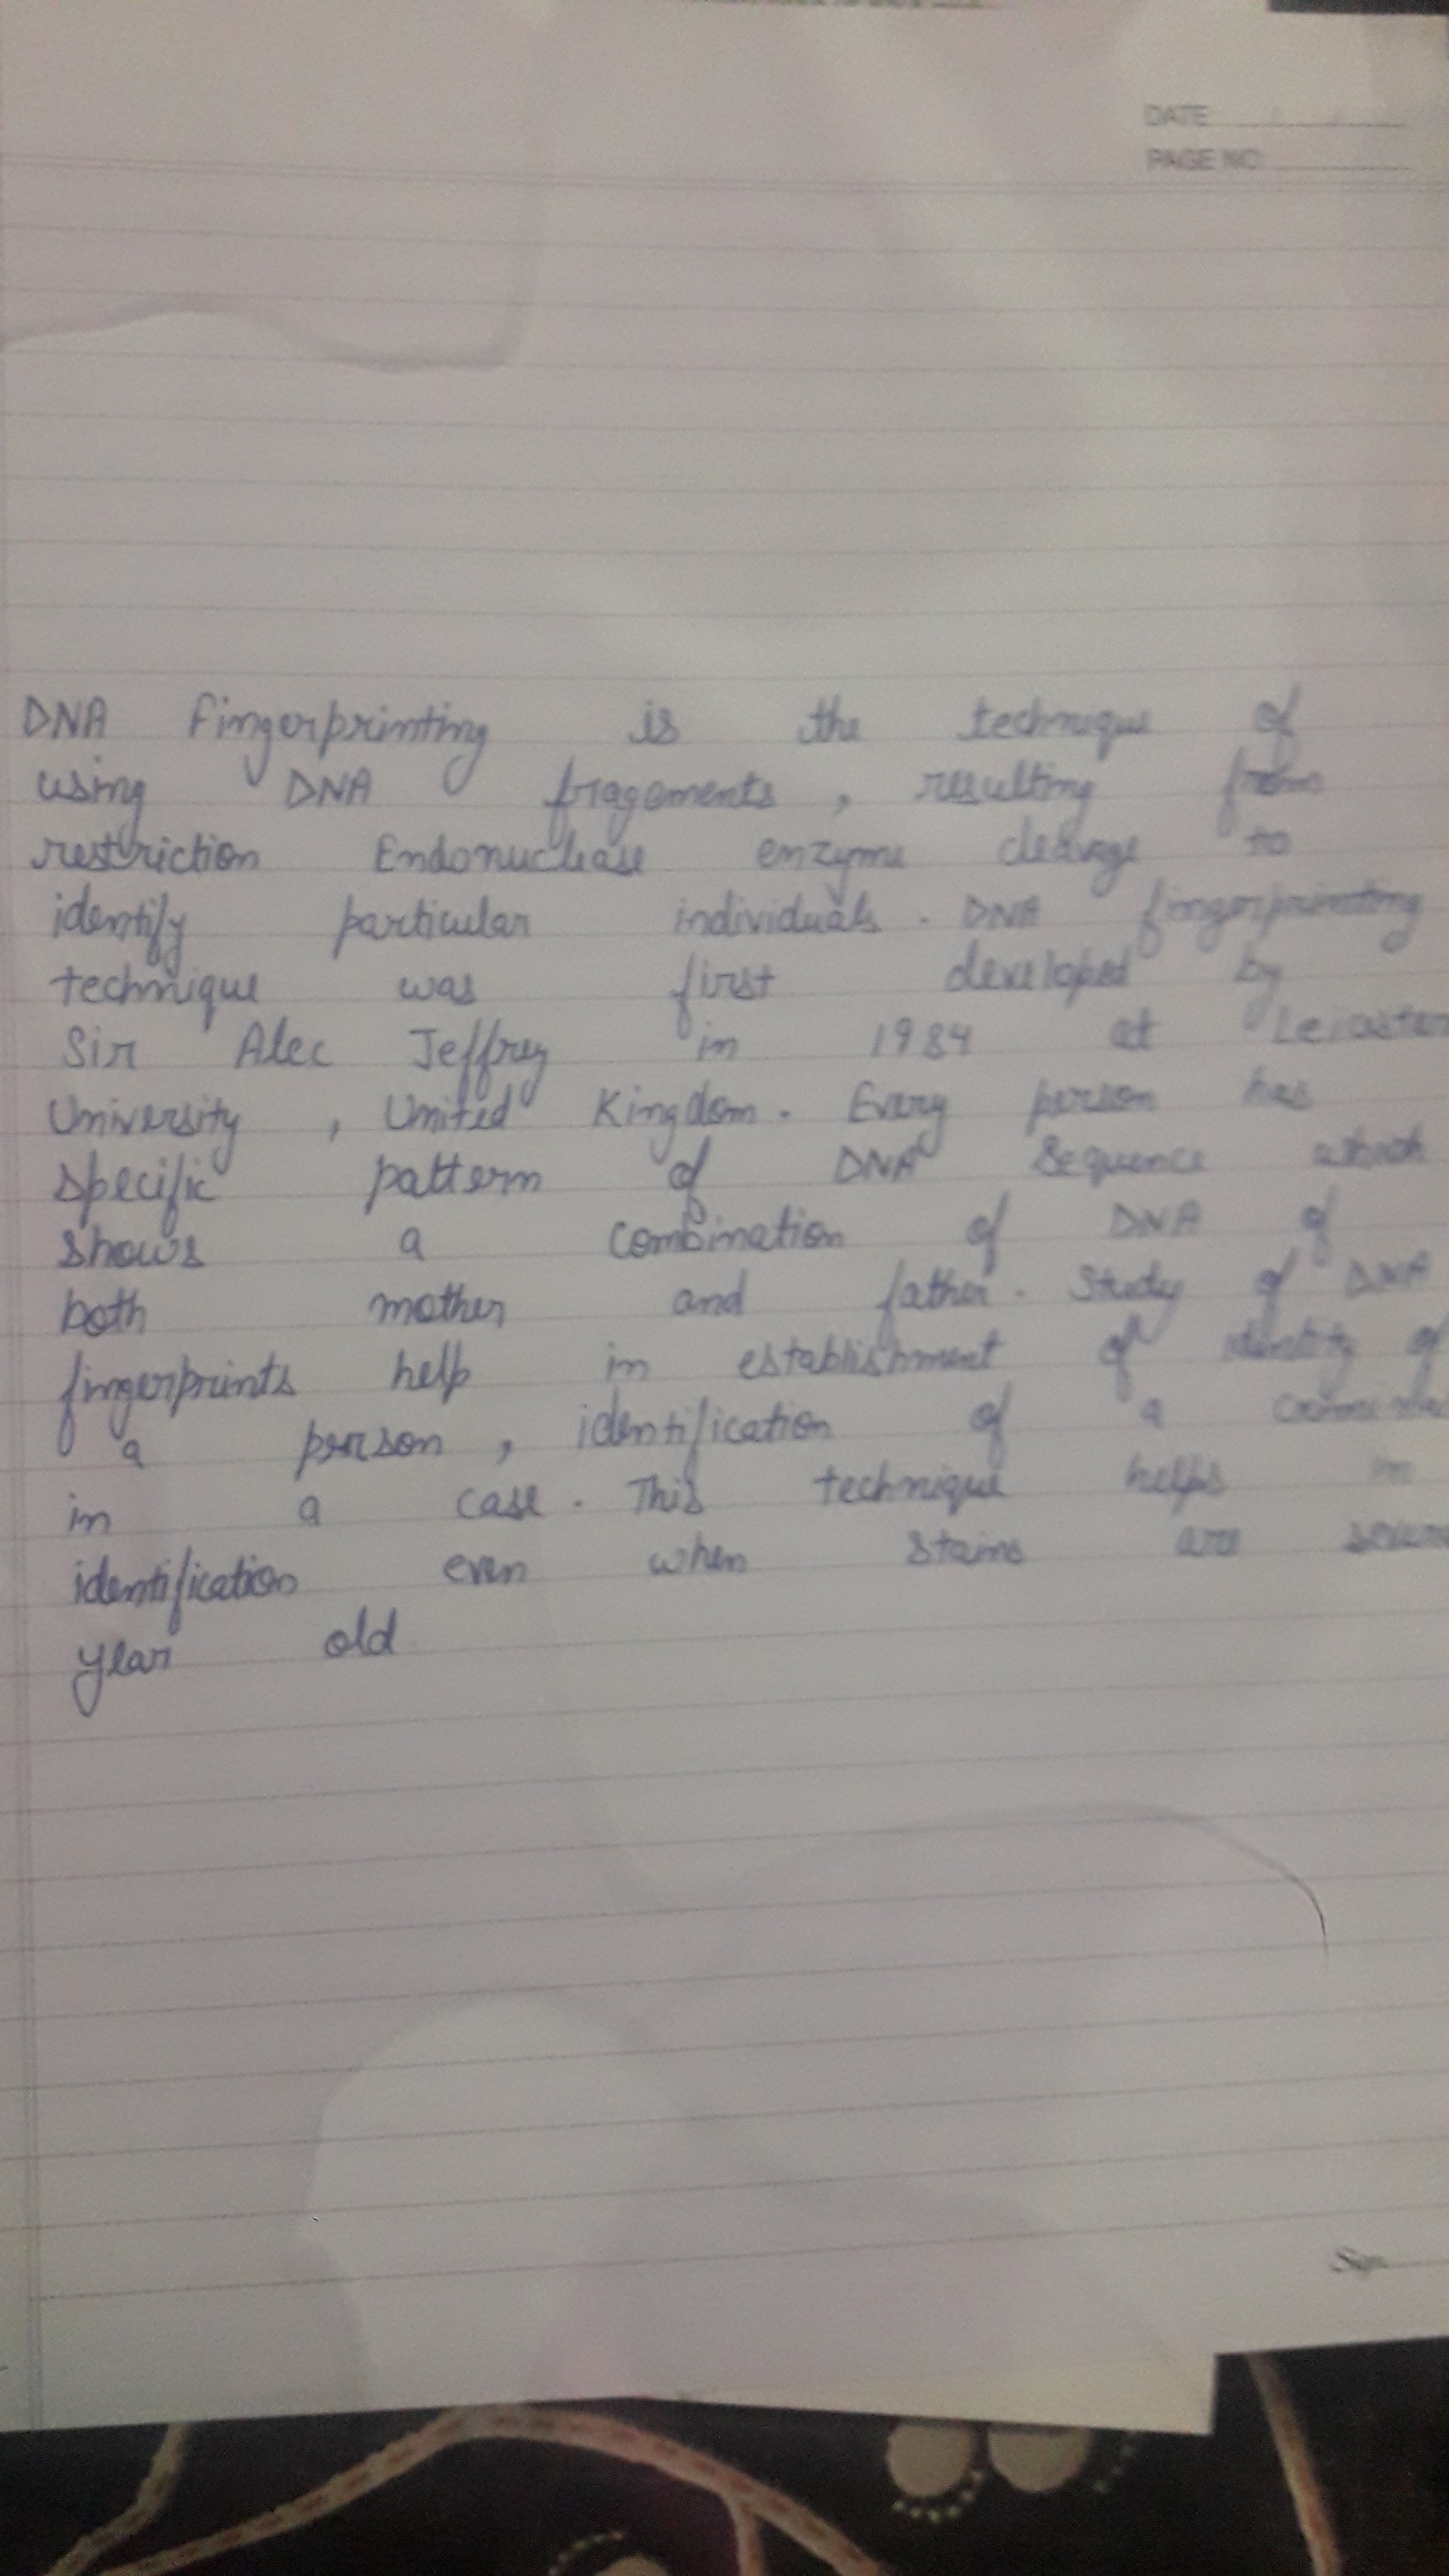 DATE
PAGE NO
DNA fingerprinting is the technique of
using DNA fragements , resulting from
restriction Endonuclease enzyme cleavage to
identify particular individuals . DNA fingerprinting
technique was first developed by
Sir Alec Jeffrey in 1984 at Leicester
University , United Kingdom . Every person has
specific pattern of DNA Sequence which
shows a combination of DNA of
both mother and father . Study of DNA
fingerprints help in establishment of identity of
a person , identification of a
in a case . This technique helps in
identification even when stains are
year old